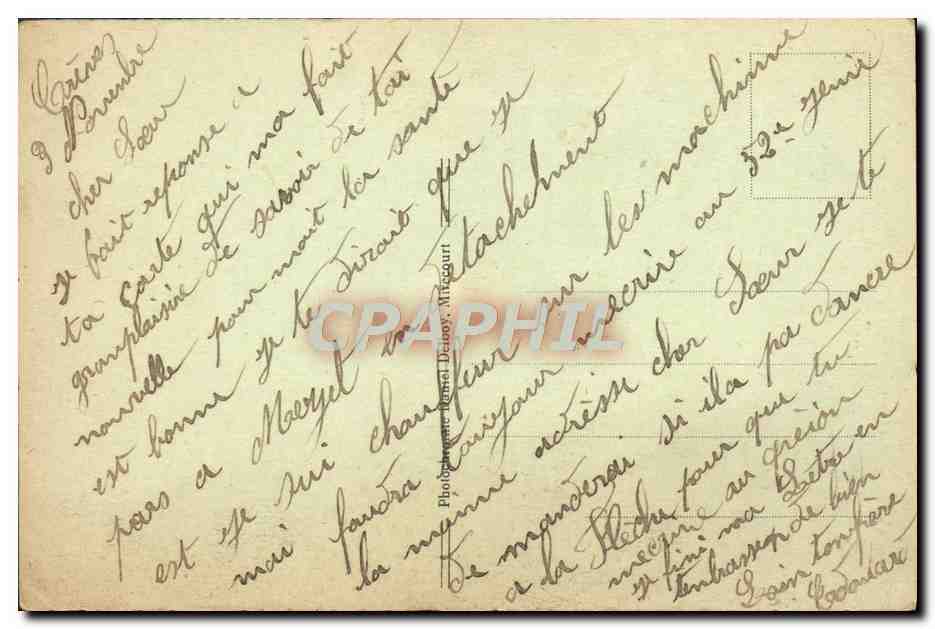 3 Novembre
cher Sœur
je fait reponse à
ta carte qui ma fait
gran plaisire de savoir de tai
nouvelle pour moit la santé
est bonne je te dirait que je
pars a en detachement
est je sui chauffeur sur les machinne
mai faudra toujour mecrire au 52e jenie
la maime adresse cher Sœur je te
demanderai si il a pa cancre
a la Flèche pour que tu
mecrire au
je fini ma Letre en
tenbrassan de bien
Loin ton frère
Edouard
Photochromie Daniel Delboy, Mirecourt
CPAPHIL